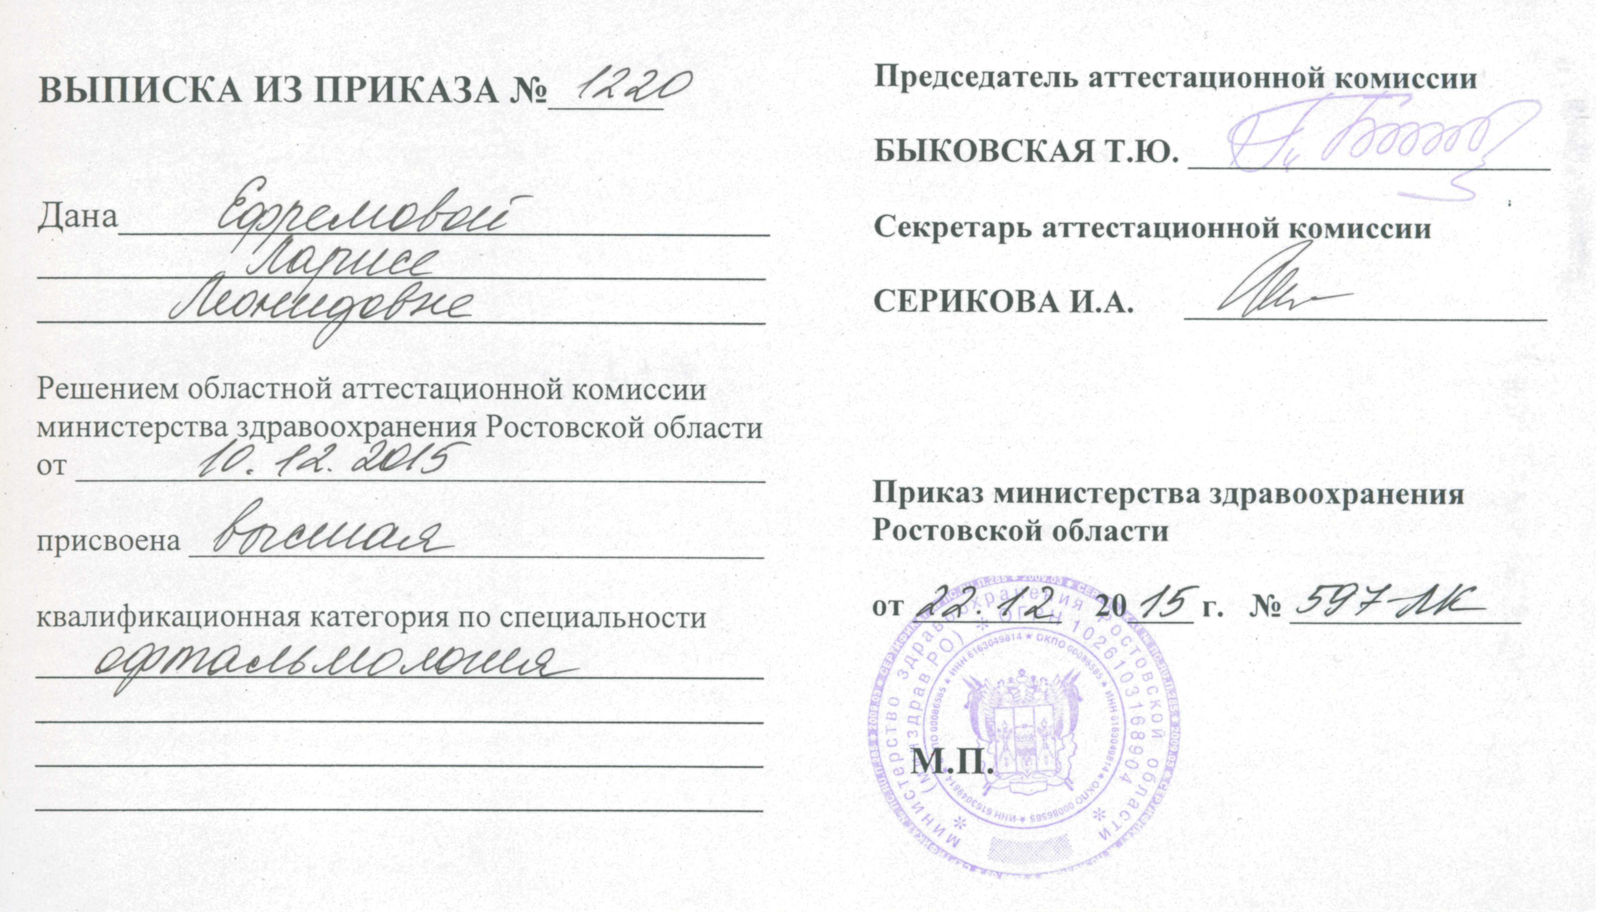 ВЫПИСКА ИЗ ПРИКАЗА № 1220
Дана Ефремовой
Ларисе
Леонидовне
Решением областной аттестационной комиссии
министерства здравоохранения Ростовской области
от 10.12.2015
присвоена высшая
квалификационная категория по специальности
офтальмология
Председатель аттестационной комиссии
БЫКОВСКАЯ Т.Ю.
Секретарь аттестационной комиссии
СЕРИКОВА И.А.
Приказ министерства здравоохранения
Ростовской области
от 22.12 2015 г. № 597-ЛК
М.П.
Министерство здравоохранения Ростовской области
(Минздрав РО) * ОГРН 1026103168904 *
ИНН 6163049814 * ОКПО 00086585